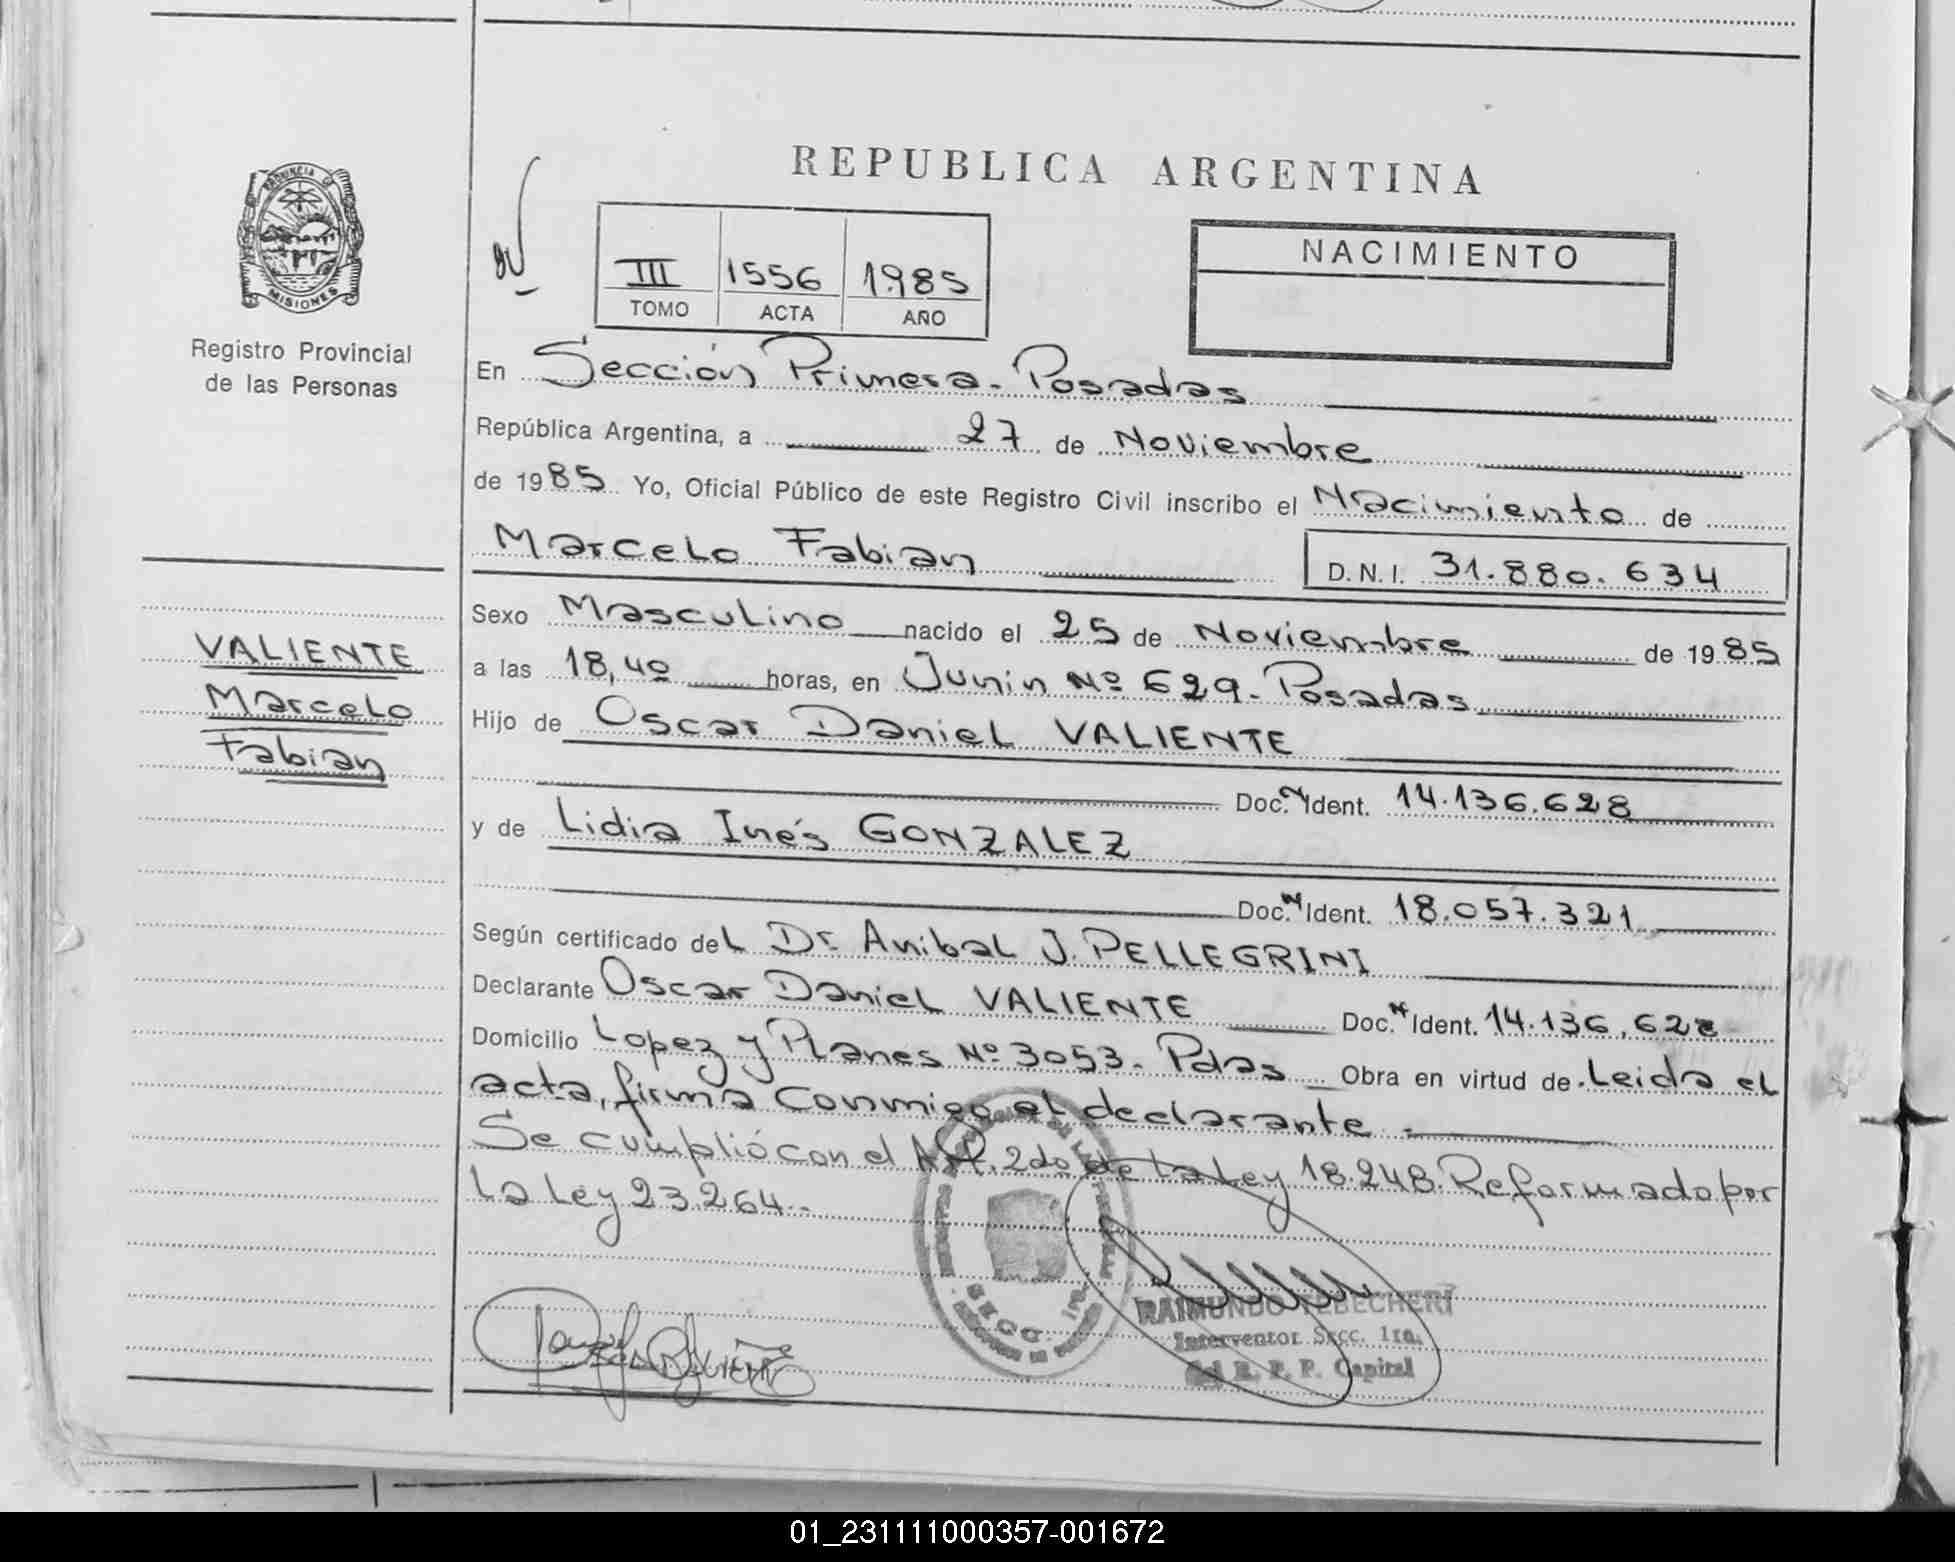 PROVINCIA DE
MISIONES
Registro Provincial
de las Personas
VALIENTE
Marcelo
Fabian
REPUBLICA ARGENTINA
III 1556 1985
TOMO ACTA AÑO
NACIMIENTO
En Sección Primera - Posadas
República Argentina, a 27 de Noviembre
de 1985 Yo, Oficial Público de este Registro Civil inscribo el Nacimiento de
Marcelo Fabian D.N.I. 31.880.634
Sexo Masculino nacido el 25 de Noviembre de 1985
a las 18,40 horas, en Junin Nº 629 - Posadas
Hijo de Oscar Daniel VALIENTE
Doc. N Ident. 14.136.628
y de Lidia Inés GONZALEZ
Doc. N Ident. 18.057.321
Según certificado del Dr. Anibal J. PELLEGRINI
Declarante Oscar Daniel VALIENTE Doc. N Ident. 14.136.628
Domicilio Lopez y Planes Nº 3053 - Pdas Obra en virtud de Leida el
acta, firma conmigo el declarante.-
Se cumplió con el Art. 2do de la Ley 18.248. Reformado por
la Ley 23.264.-
SECC. 1ra.
RAIMUNDO TEBECHERI
Interventor Secc. 1ra.
del R. P. P. Capital
01_231111000357-001672